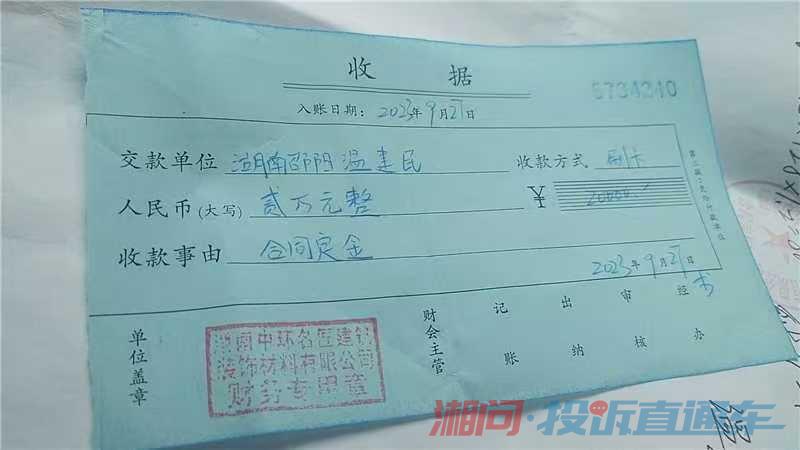 收据
5734240
入账日期：2023年9月27日
交款单位 湖南邵阳温建民 收款方式 刷卡
人民币(大写) 贰万元整 ¥ 20000.
收款事由 合同定金
2023年9月27日
单位盖章 财会主管 记账 出纳 审核 经办
湖南中环名匠建筑
装饰材料有限公司
财务专用章
湘问·投诉直通车